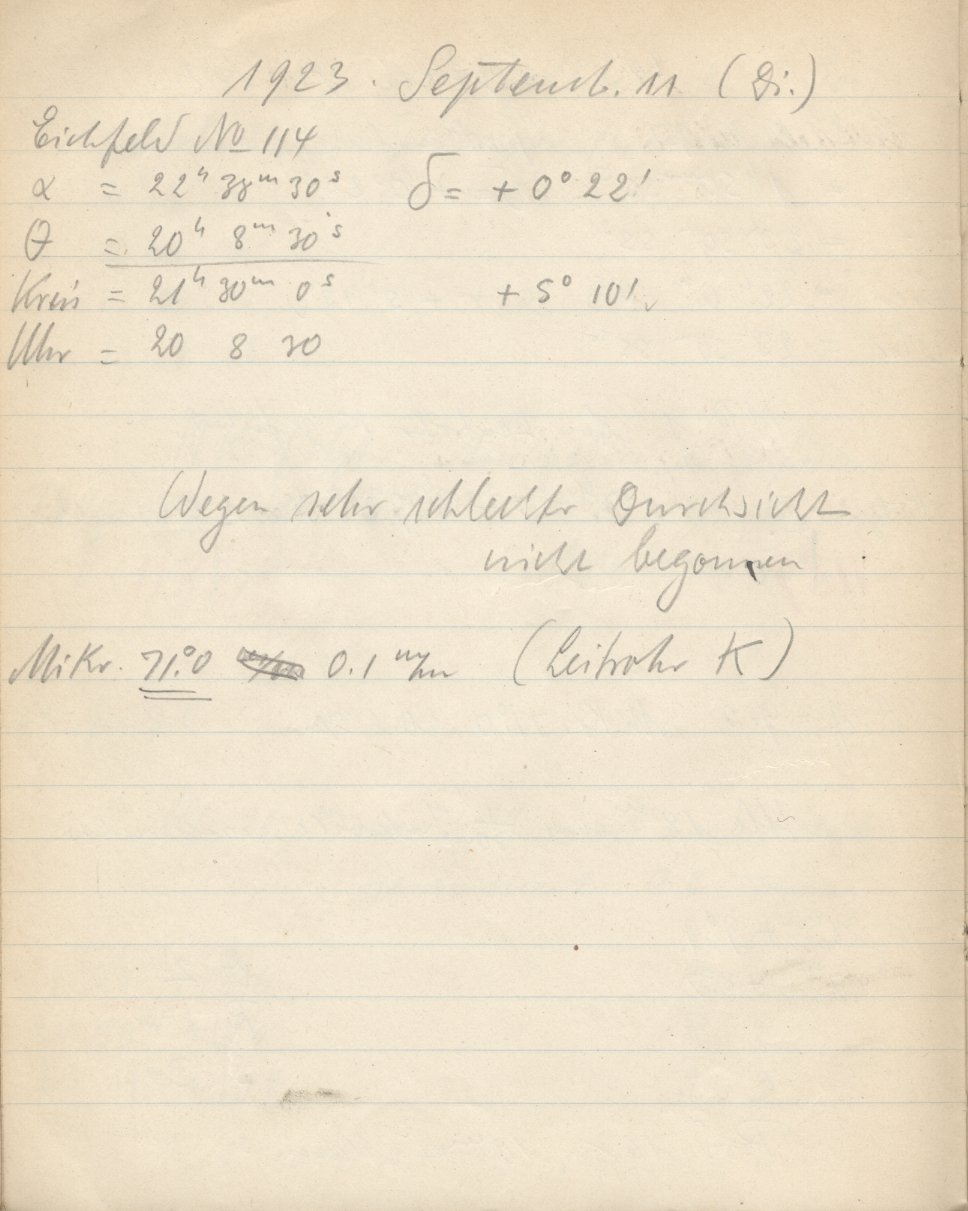 1923. Septemb. 11 (Di.)
Eichfeld No 114
α = 22ʰ 38ᵐ 30ˢ δ = + 0° 22'
θ = 20ʰ 8ᵐ 30ˢ
Kreis = 21ʰ 30ᵐ 0ˢ + 5° 10'
Uhr = 20 8 30
Wegen sehr schlechter Durchsicht
nicht begonnen
Mikr. 71.°0 0.1 m/m (Leitrohr K)